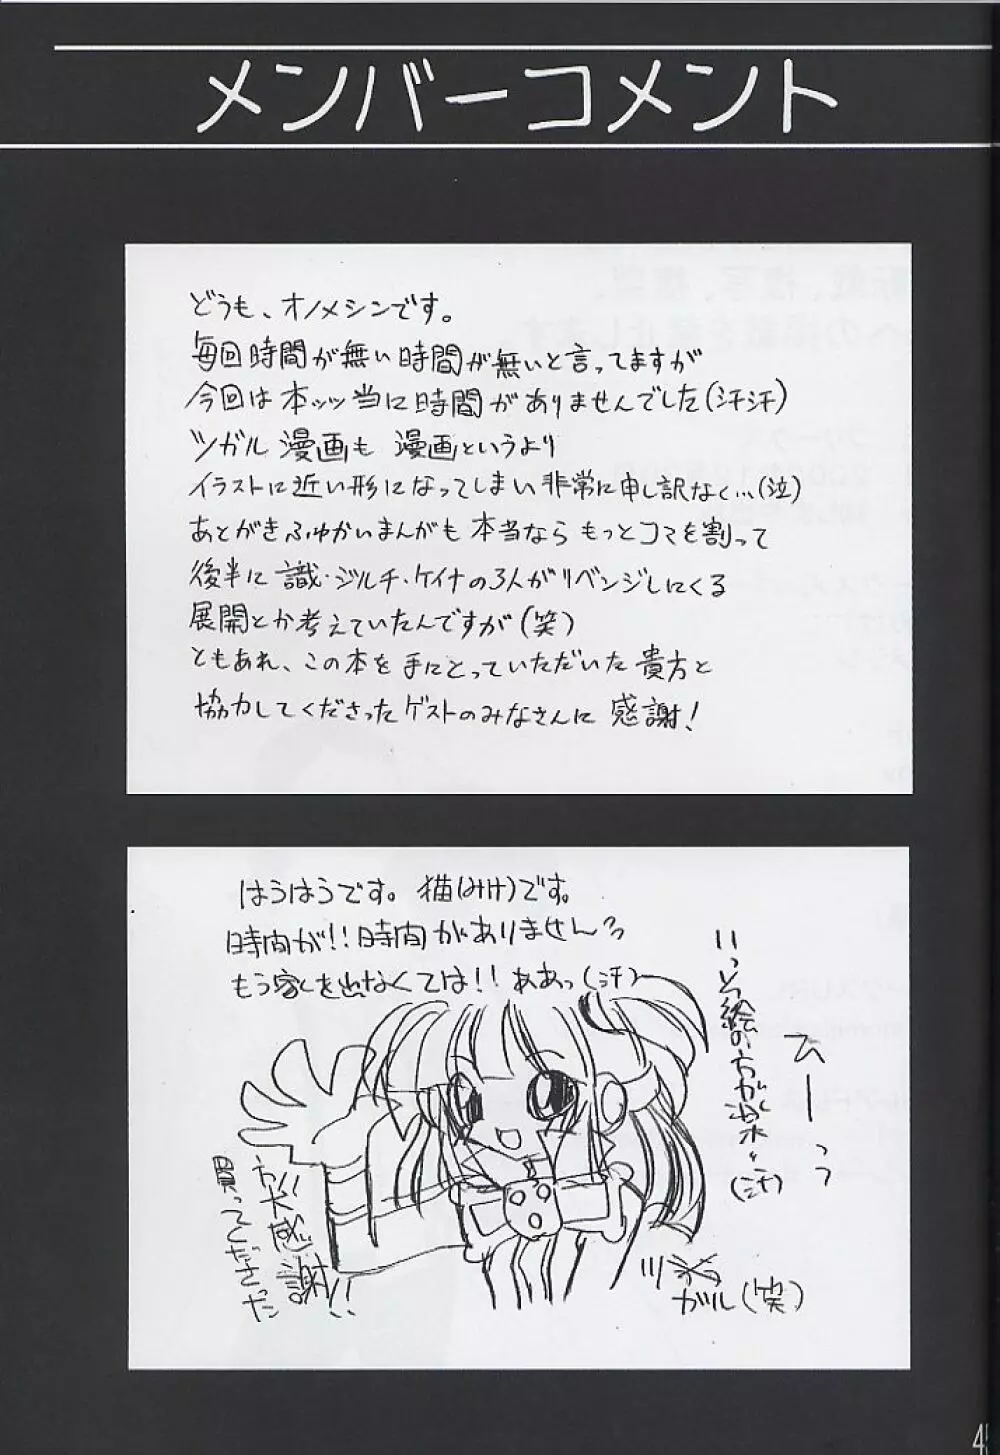 メンバーコメント
どうも、オノメシンです。
毎回時間が無い時間が無いと言ってますが
今回は本ッッ当に時間がありませんでした(汗汗)
ツガル漫画も漫画というより
イラストに近い形になってしまい非常に申し訳なく…(泣)
あとがきふゆかいまんがも本当ならもっとコマを割って
後半に識・ジルチ・ケイナの3人がリベンジしにくる
展開とか考えていたんですが(笑)
ともあれ、この本を手にとっていただいた貴方と
協力してくださったゲストのみなさんに感謝!
はうはうです。猫(みけ)です。
時間が!!時間がありません
もう家を出なくては!!ああっ(汗)
いっそ絵の方が楽
(汗)
ひーーっっ
買ってくださった
方に大感謝!!
ガル(笑)
4